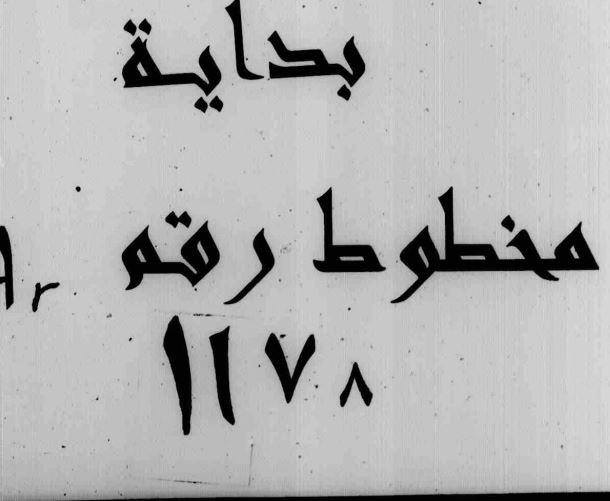 بداية
مخطوط رقم Ar
١١٧٨